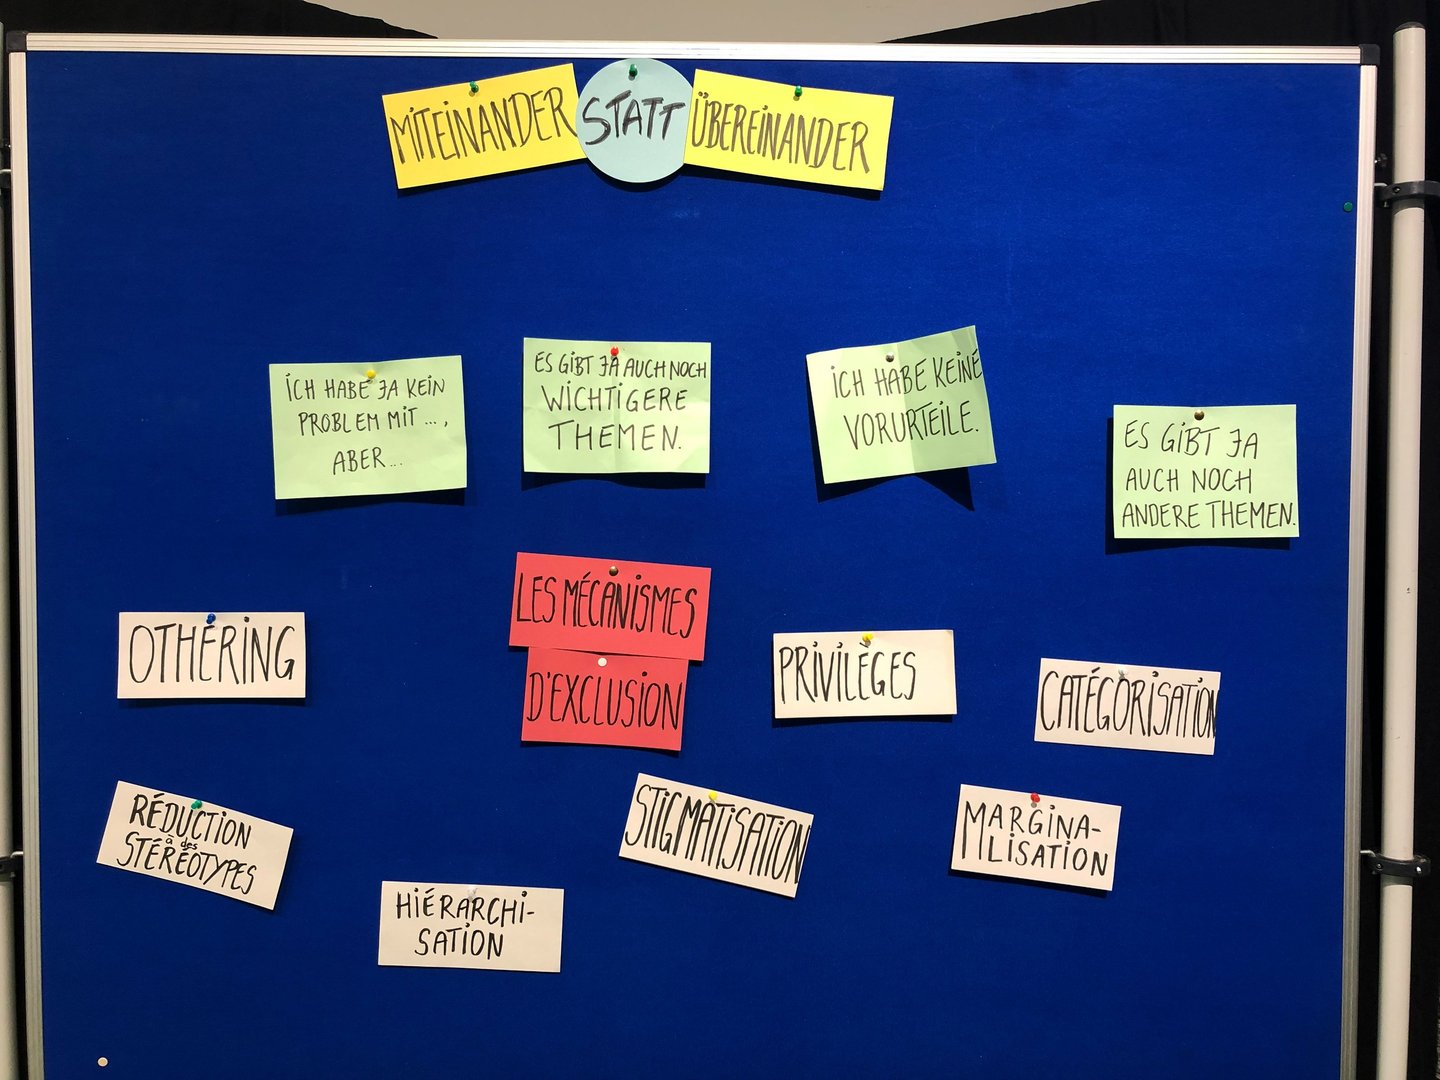 MITEINANDER STATT ÜBEREINANDER
ICH HABE JA KEIN
PROBLEM MIT ...,
ABER...
ES GIBT JA AUCH NOCH
WICHTIGERE
THEMEN.
ICH HABE KEINE
VORURTEILE.
ES GIBT JA
AUCH NOCH
ANDERE THEMEN.
LES MÉCANISMES
D'EXCLUSION
OTHERING
PRIVILÉGES
CATÉGORISATION
RÉDUCTION
à des
STÉRÉOTYPES
STIGMATISATION
MARGINA-
LISATION
HIÉRARCHI-
SATION